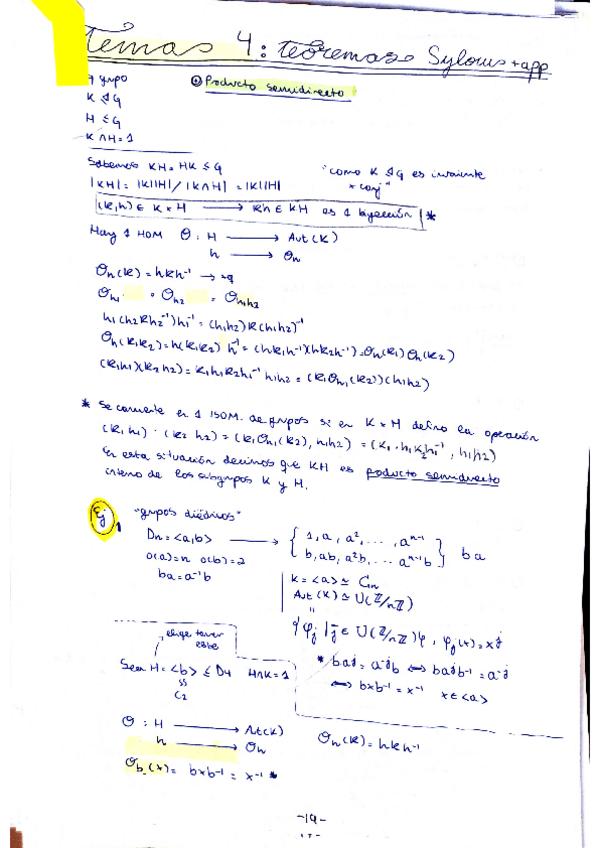 Temas 4: teoremas Sylows + app
G grupo
⊙ Producto semidirecto
K ⊴ G
H ≤ G
K ∩ H = 1
Sabemos KH = HK ≤ G
"como K ⊴ G es invariante x conj"
|KH| = |K||H| / |K∩H| = |K||H|
(k,h) ∈ K x H → kh ∈ KH es 1 biyección *
Hay 1 HOM Θ : H → Aut(K)
h → Θh
Θh(k) = hkh⁻¹
Θh1 ∘ Θh2 = Θh1h2
h1(h2kh2⁻¹)h1⁻¹ = (h1h2)k(h1h2)⁻¹
Θh(k1k2) = h(k1k2)h⁻¹ = (hk1h⁻¹)(hk2h⁻¹) = Θh(k1)Θh(k2)
(k1h1)(k2h2) = k1h1k2h1⁻¹h1h2 = (k1Θh1(k2))(h1h2)
* Se convierte en 1 ISOM. de grupos si en K x H defino la operación
(k1h1) · (k2h2) = (k1Θh1(k2), h1h2) = (k1·h1k2h1⁻¹, h1h2)
En esta situación decimos que KH es producto semidirecto
interno de los subgrupos K y H.
Ej 1 "grupos diédricos"
Dn = <a,b> → { 1, a, a², ..., aⁿ⁻¹
b, ab, a²b, ... aⁿ⁻¹b } ba
o(a)=n o(b)=2
ba = a⁻¹b
K = <a> ≃ Cn
Aut(K) ≃ U(Z/nZ)
"
{φj | j̄ ∈ U(Z/nZ)}, φj(x) = xʲ
elige tener este
* baʲ = a⁻ʲb ⟺ baʲb⁻¹ = a⁻ʲ
Sean H = <b> ≤ D4 H∩K = 1
⟺ bxb⁻¹ = x⁻¹ x∈<a>
C2
Θ : H → Aut(K)
h → Θh
Θh(k) = hkh⁻¹
Θb(x) = bxb⁻¹ = x⁻¹ *